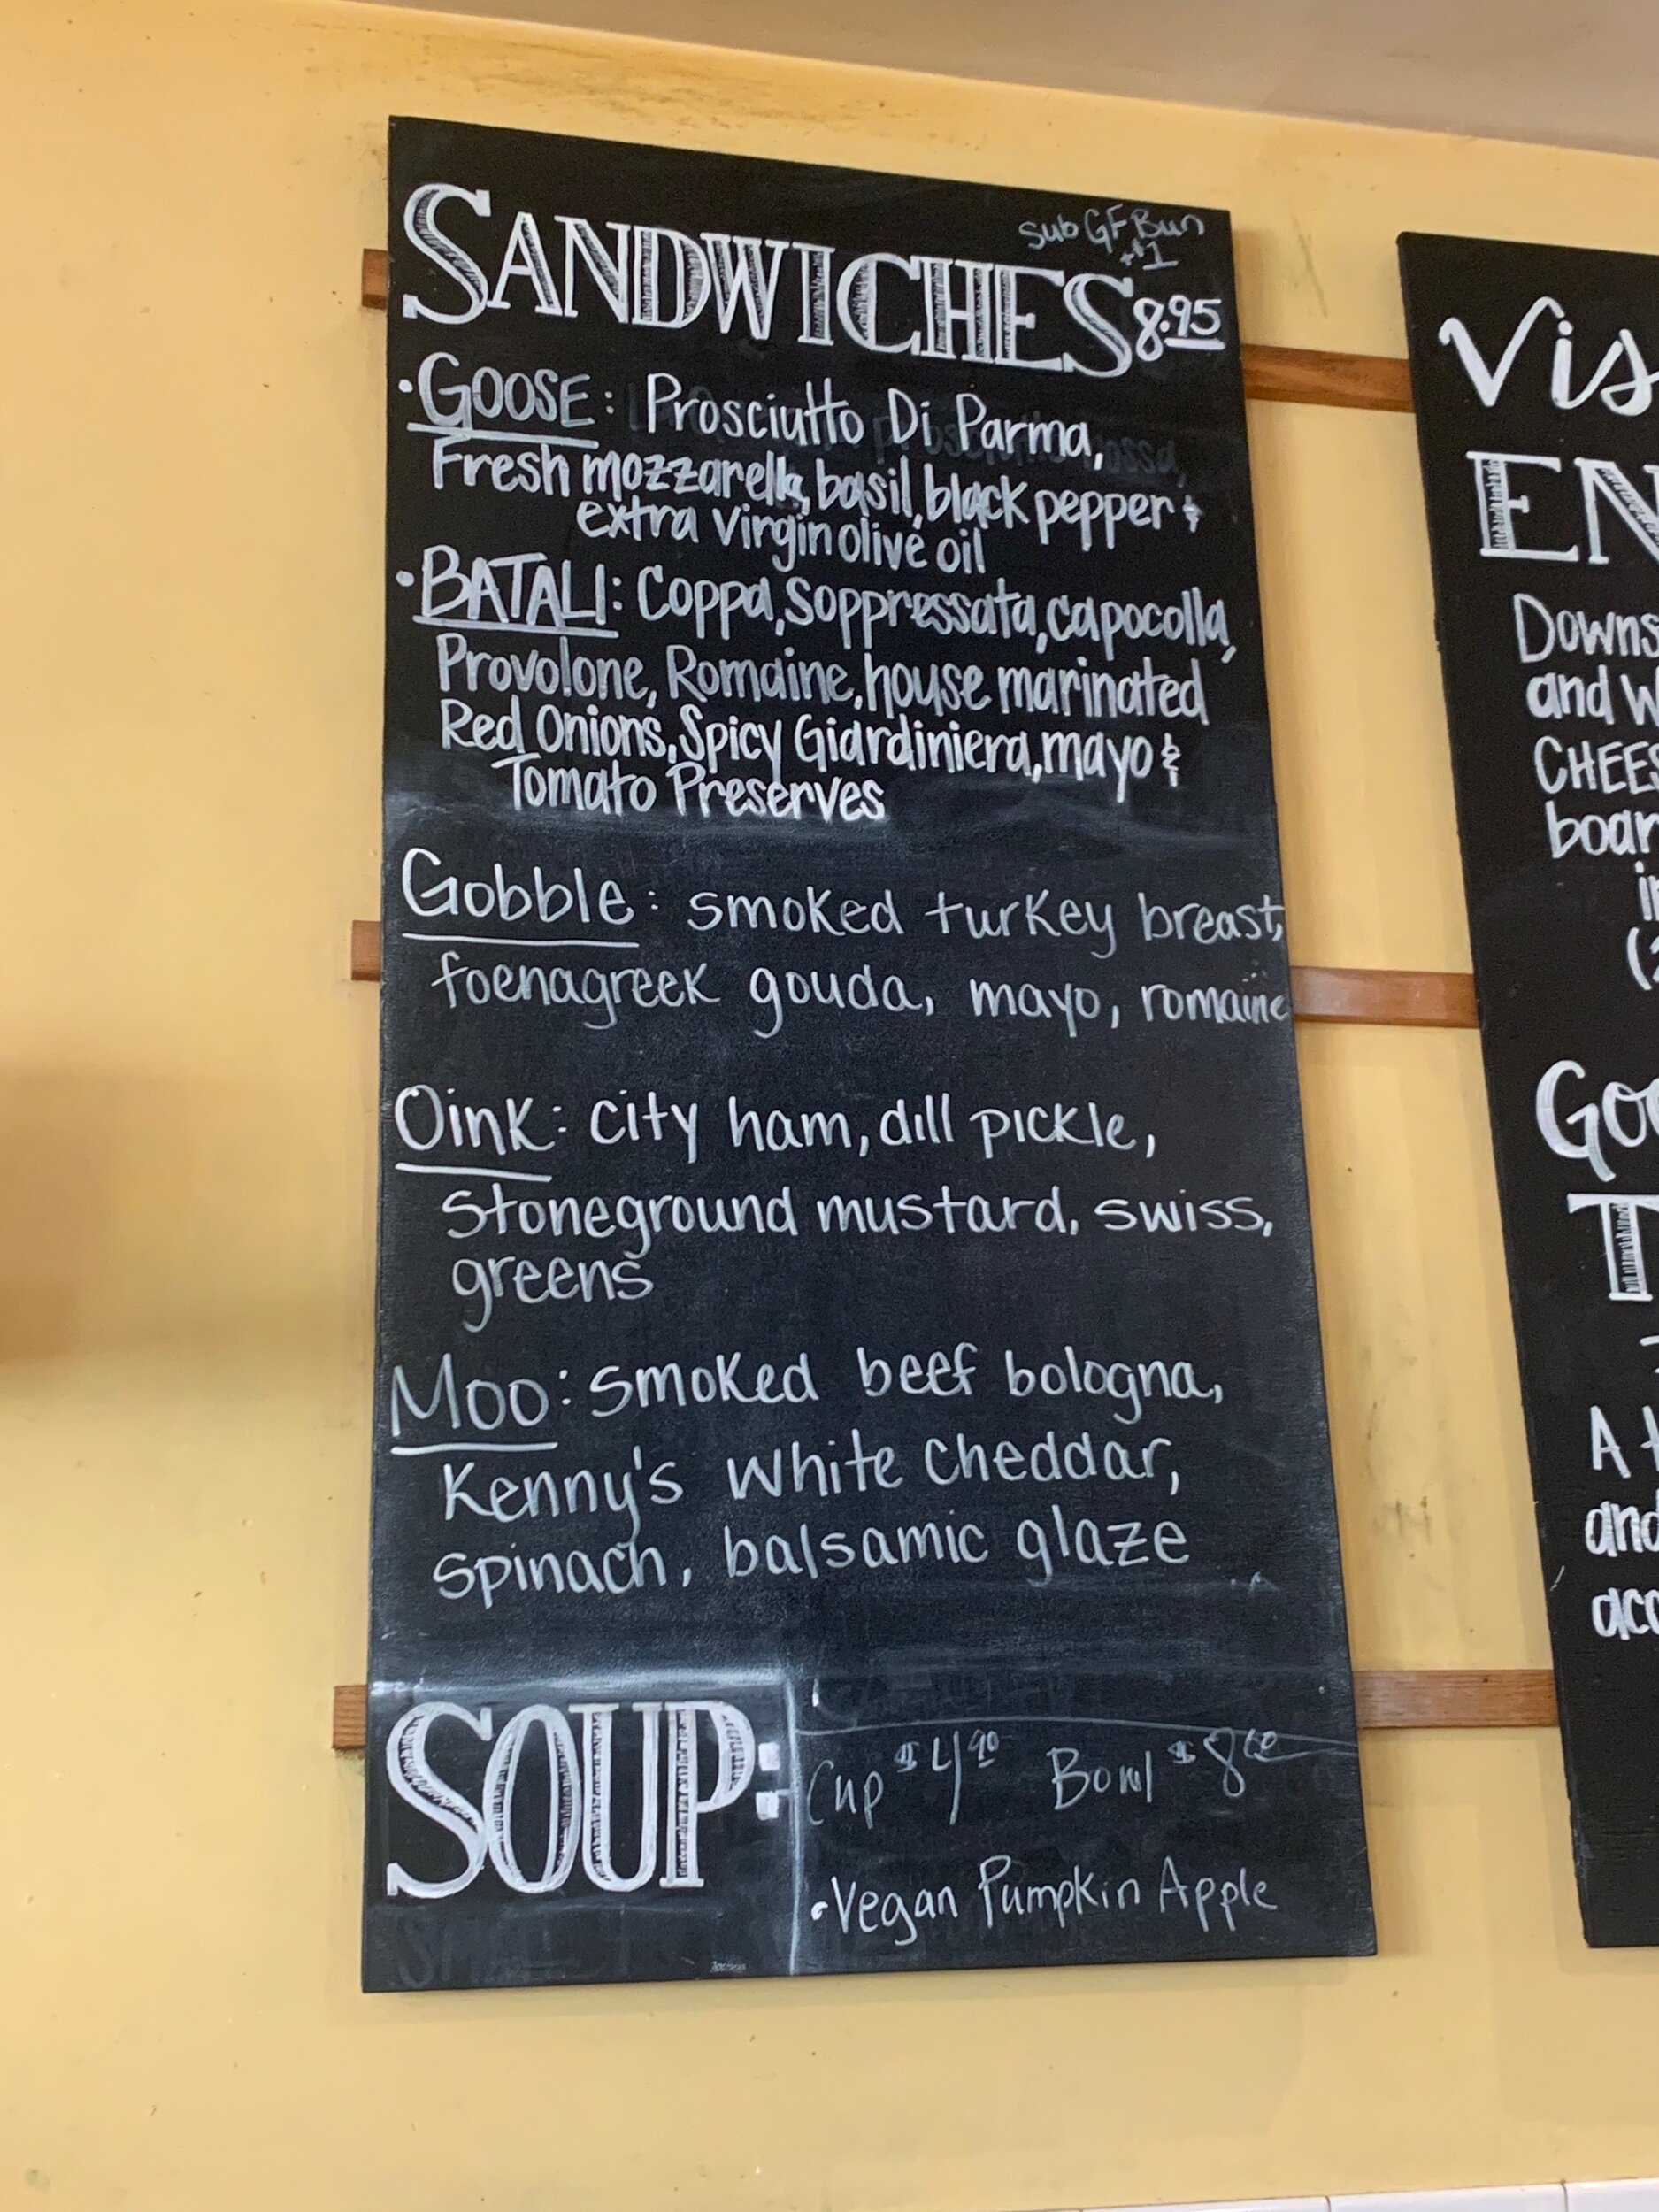 sub GF Bun
+$1
SANDWICHES 8.95
•GOOSE: Prosciutto Di Parma,
Fresh mozzarella, basil, black pepper &
extra virgin olive oil
•BATALI: Coppa, Soppressata, capocolla,
Provolone, Romaine, house marinated
Red Onions, Spicy Giardiniera, mayo &
Tomato Preserves
Gobble: smoked turkey breast,
foenagreek gouda, mayo, romaine
Oink: city ham, dill pickle,
stoneground mustard, swiss,
greens
Moo: smoked beef bologna,
Kenny's white cheddar,
spinach, balsamic glaze
SOUP:
Cup $4.90 Bowl $8
•Vegan Pumpkin Apple
Vis
EN
Downs
and W
CHEES
boar
in
Goo
T
A t
and
acc